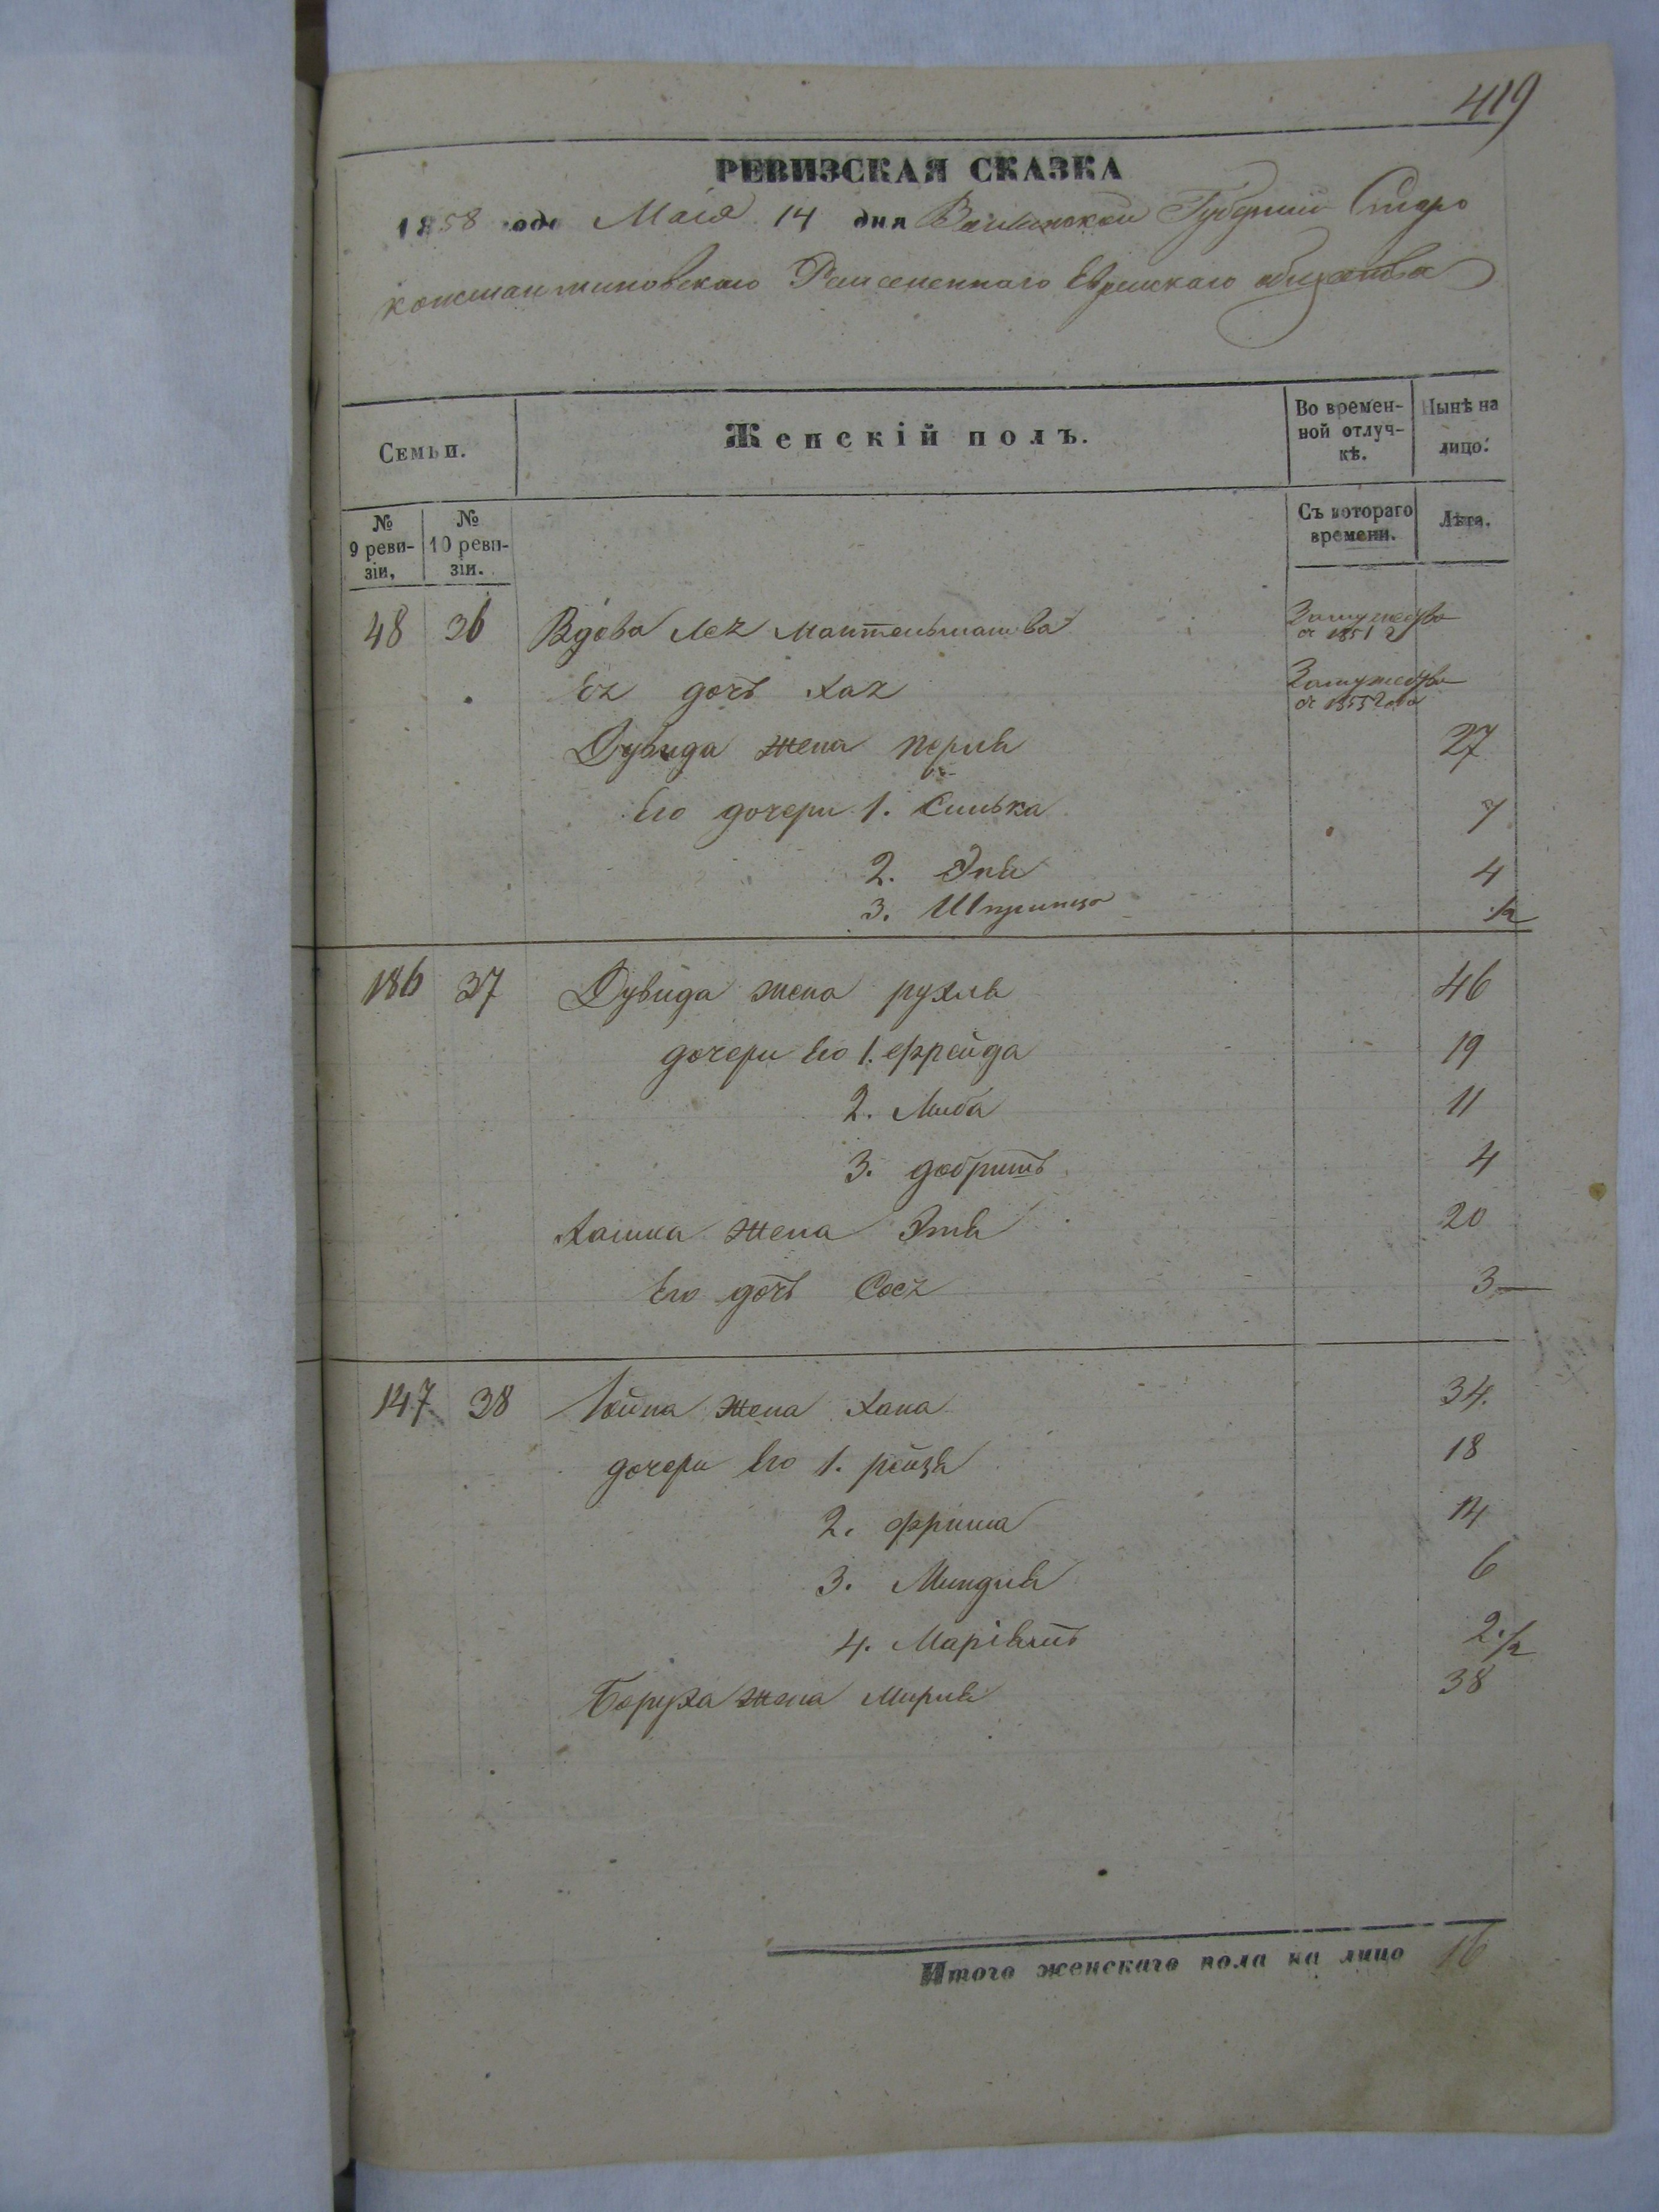 419
РЕВИЗСКАЯ СКАЗКА
1858 года Маія 14 дня Волынской Губерніи Старо
константиновскаго Еврейскаго общества
Семьи.
Женскій полъ.
Во времен-
ной отлуч-
кѣ.
Нынѣ на
лицо.
№
9 реви-
зіи,
№
10 реви-
зіи.
Съ котораго
времени.
Лѣта.
48 36 Вдова Лея Мантельмахова Замужество
с 1851 г
Ея дочь Хая Замужество
с 1855 года
Дувида жена Перля 27
Его дочери 1. Симка 7
2. Эня 4
3. Шпринца ½
186 37 Дувида жена рухля 46
дочери Его 1. фрейда 19
2. Люба 11
3. добришъ 4
Хаима жена Этя 20
Его дочь Сося 3
147 38 Іойна жена Хана 34.
дочери Его 1. рейзя 18
2. фрима 14
3. Миндля 6
4. 2.½
Боруха жена Мирля 38
Итого женскаго пола на лицо 16